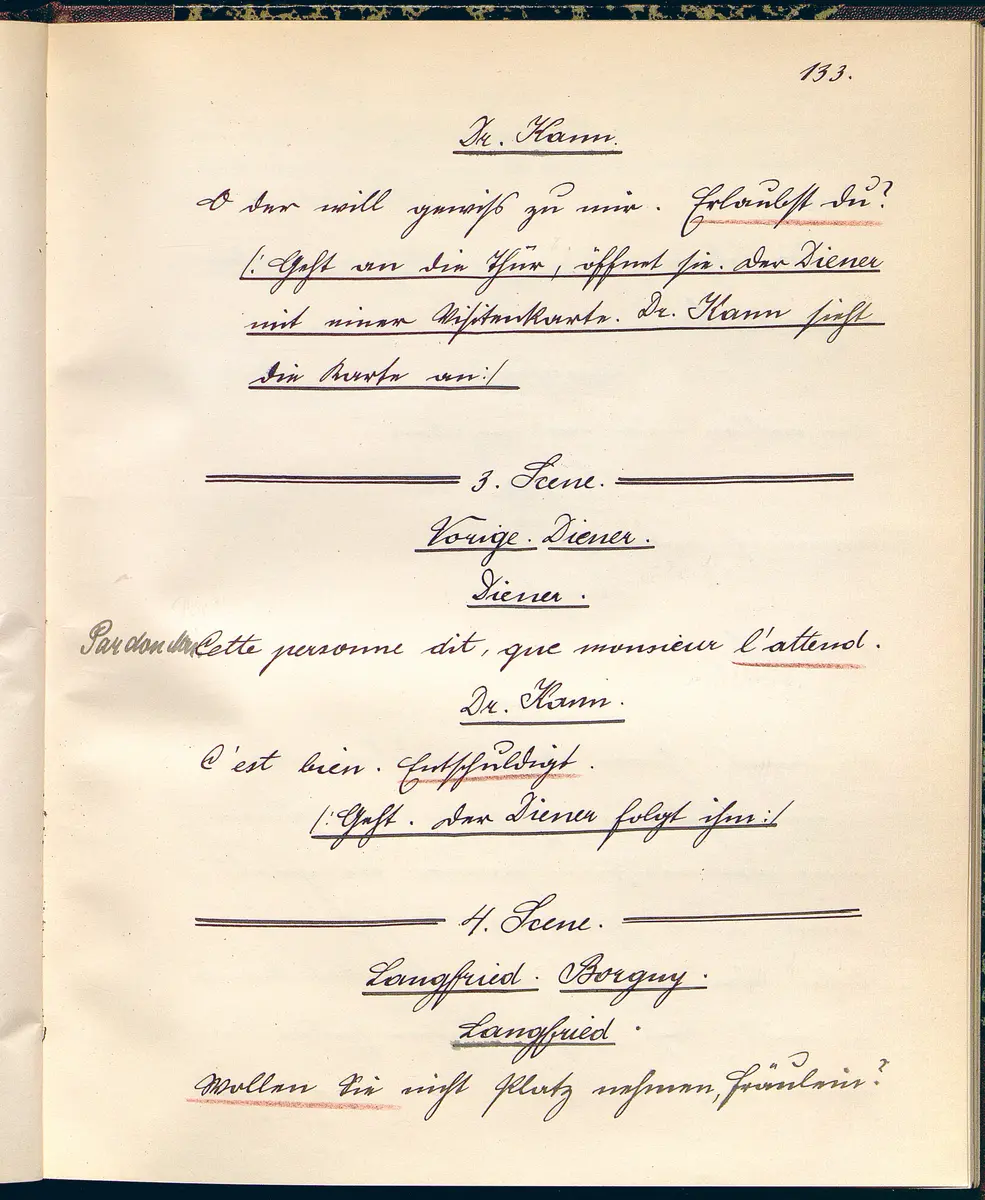 133.
Dr. Kann.
O der will gewiss zu mir. Erlaubst du?
/: Geht an die Thür, öffnet sie. Der Diener
mit einer Visitenkarte. Dr. Kann sieht
die Karte an:/
3. Scene.
Vorige. Diener.
Diener.
Pardon Cette personne dit, que monsieur l'attend.
Dr. Kann.
C'est bien. Entschuldigt.
/: Geht. Der Diener folgt ihm:/
4. Scene.
Langfried. Borgny.
Langfried.
Wollen Sie nicht Platz nehmen, Fräulein?